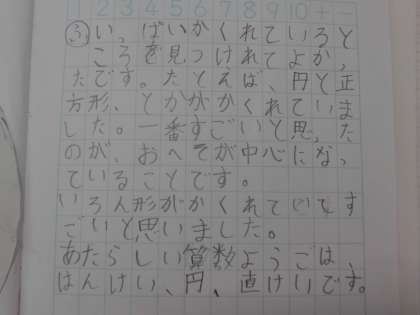 1 2 3 4 5 6 7 8 9 10 + −
ふい。ぱいかくれていると
ころを見つけれてよか、
たです。たとえば、円と正
方形、とかがかくれていま
した。一番すごいと思、た
のが、おへそが中心にな、
ていることです。
いろん形がかくれていてす
ごいと思いました。
あたらしい算数ようごは、
はんけい、円、直けいです。